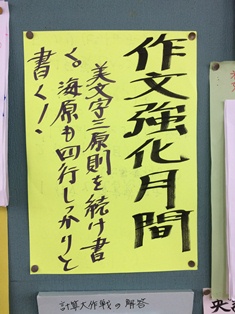 作文強化月間
美文字三原則を続け書
く。海原も四行しっかりと
書く！
計算大作戦の解答